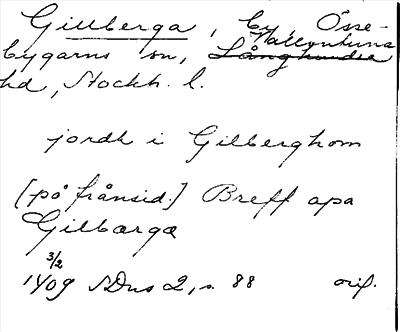 Gillberga, by, Össe-
Vallentuna
bygarns sn, Långhundra
hd, Stockh. l.
jordh i Gilberghom
[på frånsid.] Breff apa
Gilbærgæ
3/2
1409 SDns 2, s. 88 orif.